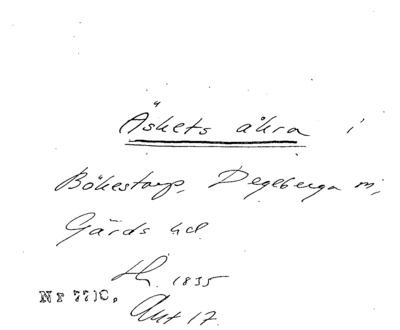 Äskets åkra i
Bökestorp, Degeberga sn,
Gärds hd.
1835
Nr 7710.
Akt 17.